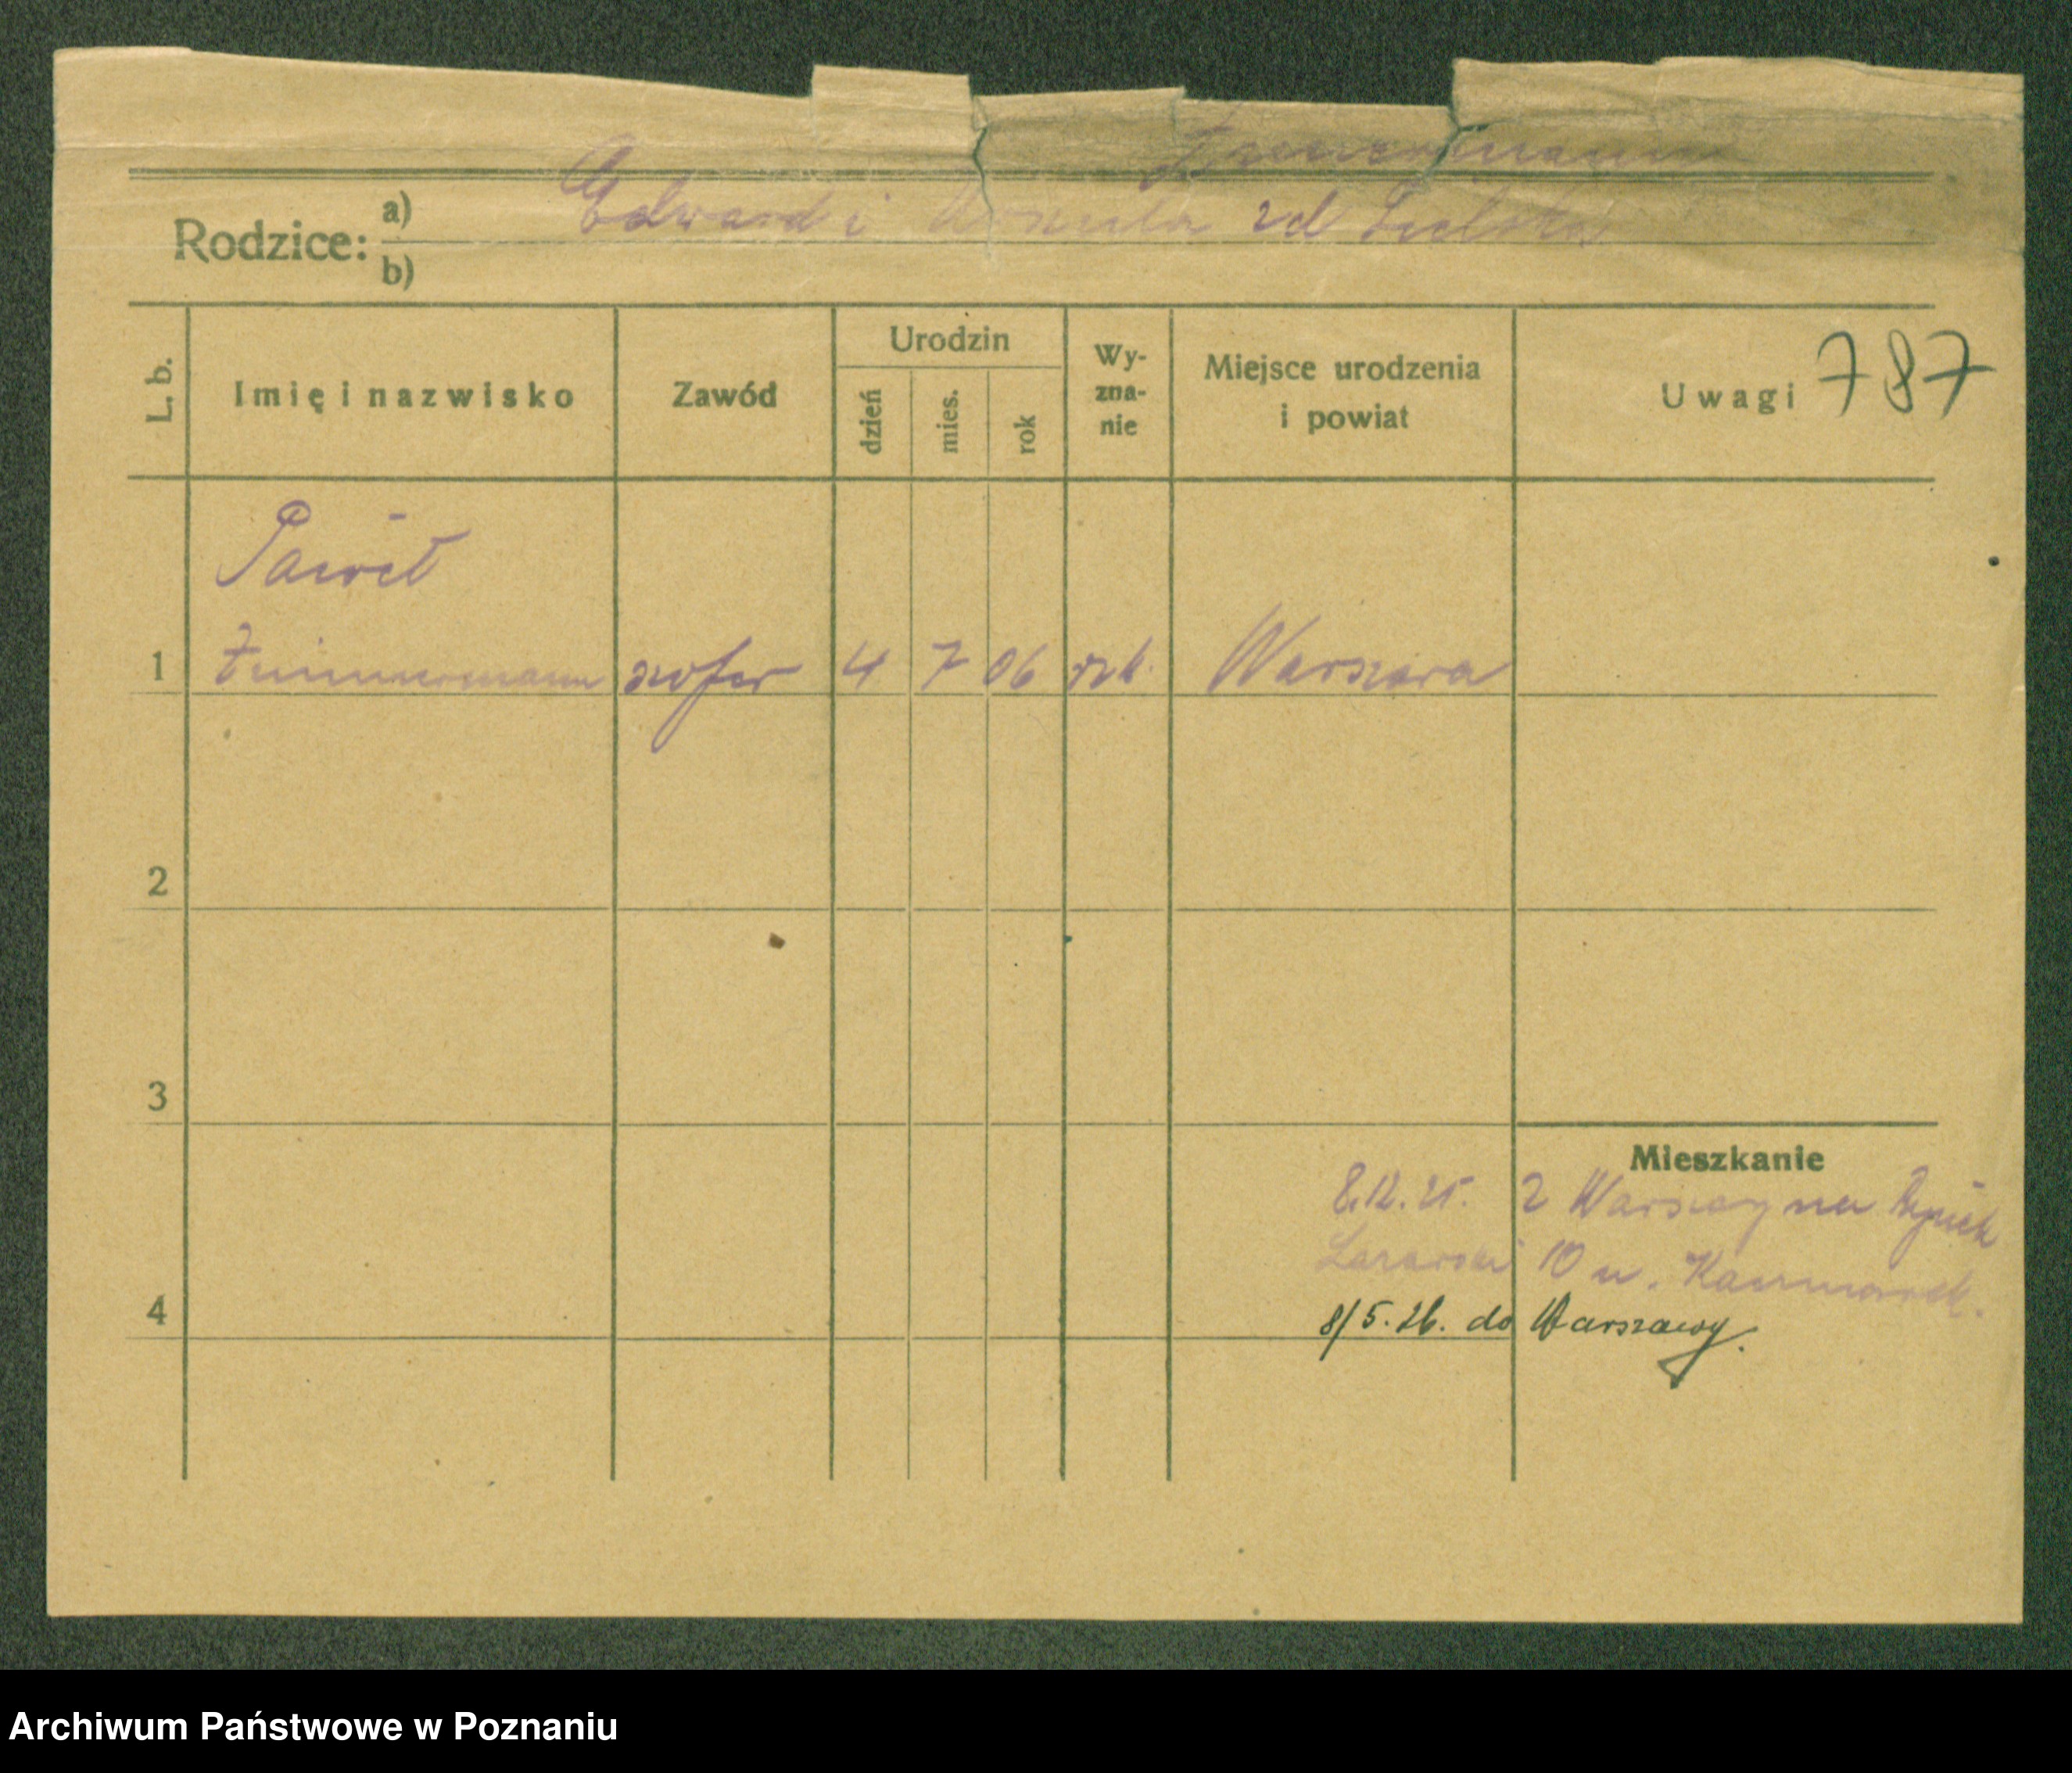 Zimmermann
Rodzice: a) Edward i Urszula zd
b)
L. b.
Imię i nazwisko
Zawód
Urodzin
dzień
mies.
rok
Wy-
zna-
nie
Miejsce urodzenia
i powiat
Uwagi 787
Paweł
1 Zimmermann szofer 4 7 06 rzk. Warszawa
2
3
Mieszkanie
8.12.25. z Warszawy na Rynek
Łazarski 10 u. Kaczmarek.
4
8/5.26. do Warszawy.
Archiwum Państwowe w Poznaniu